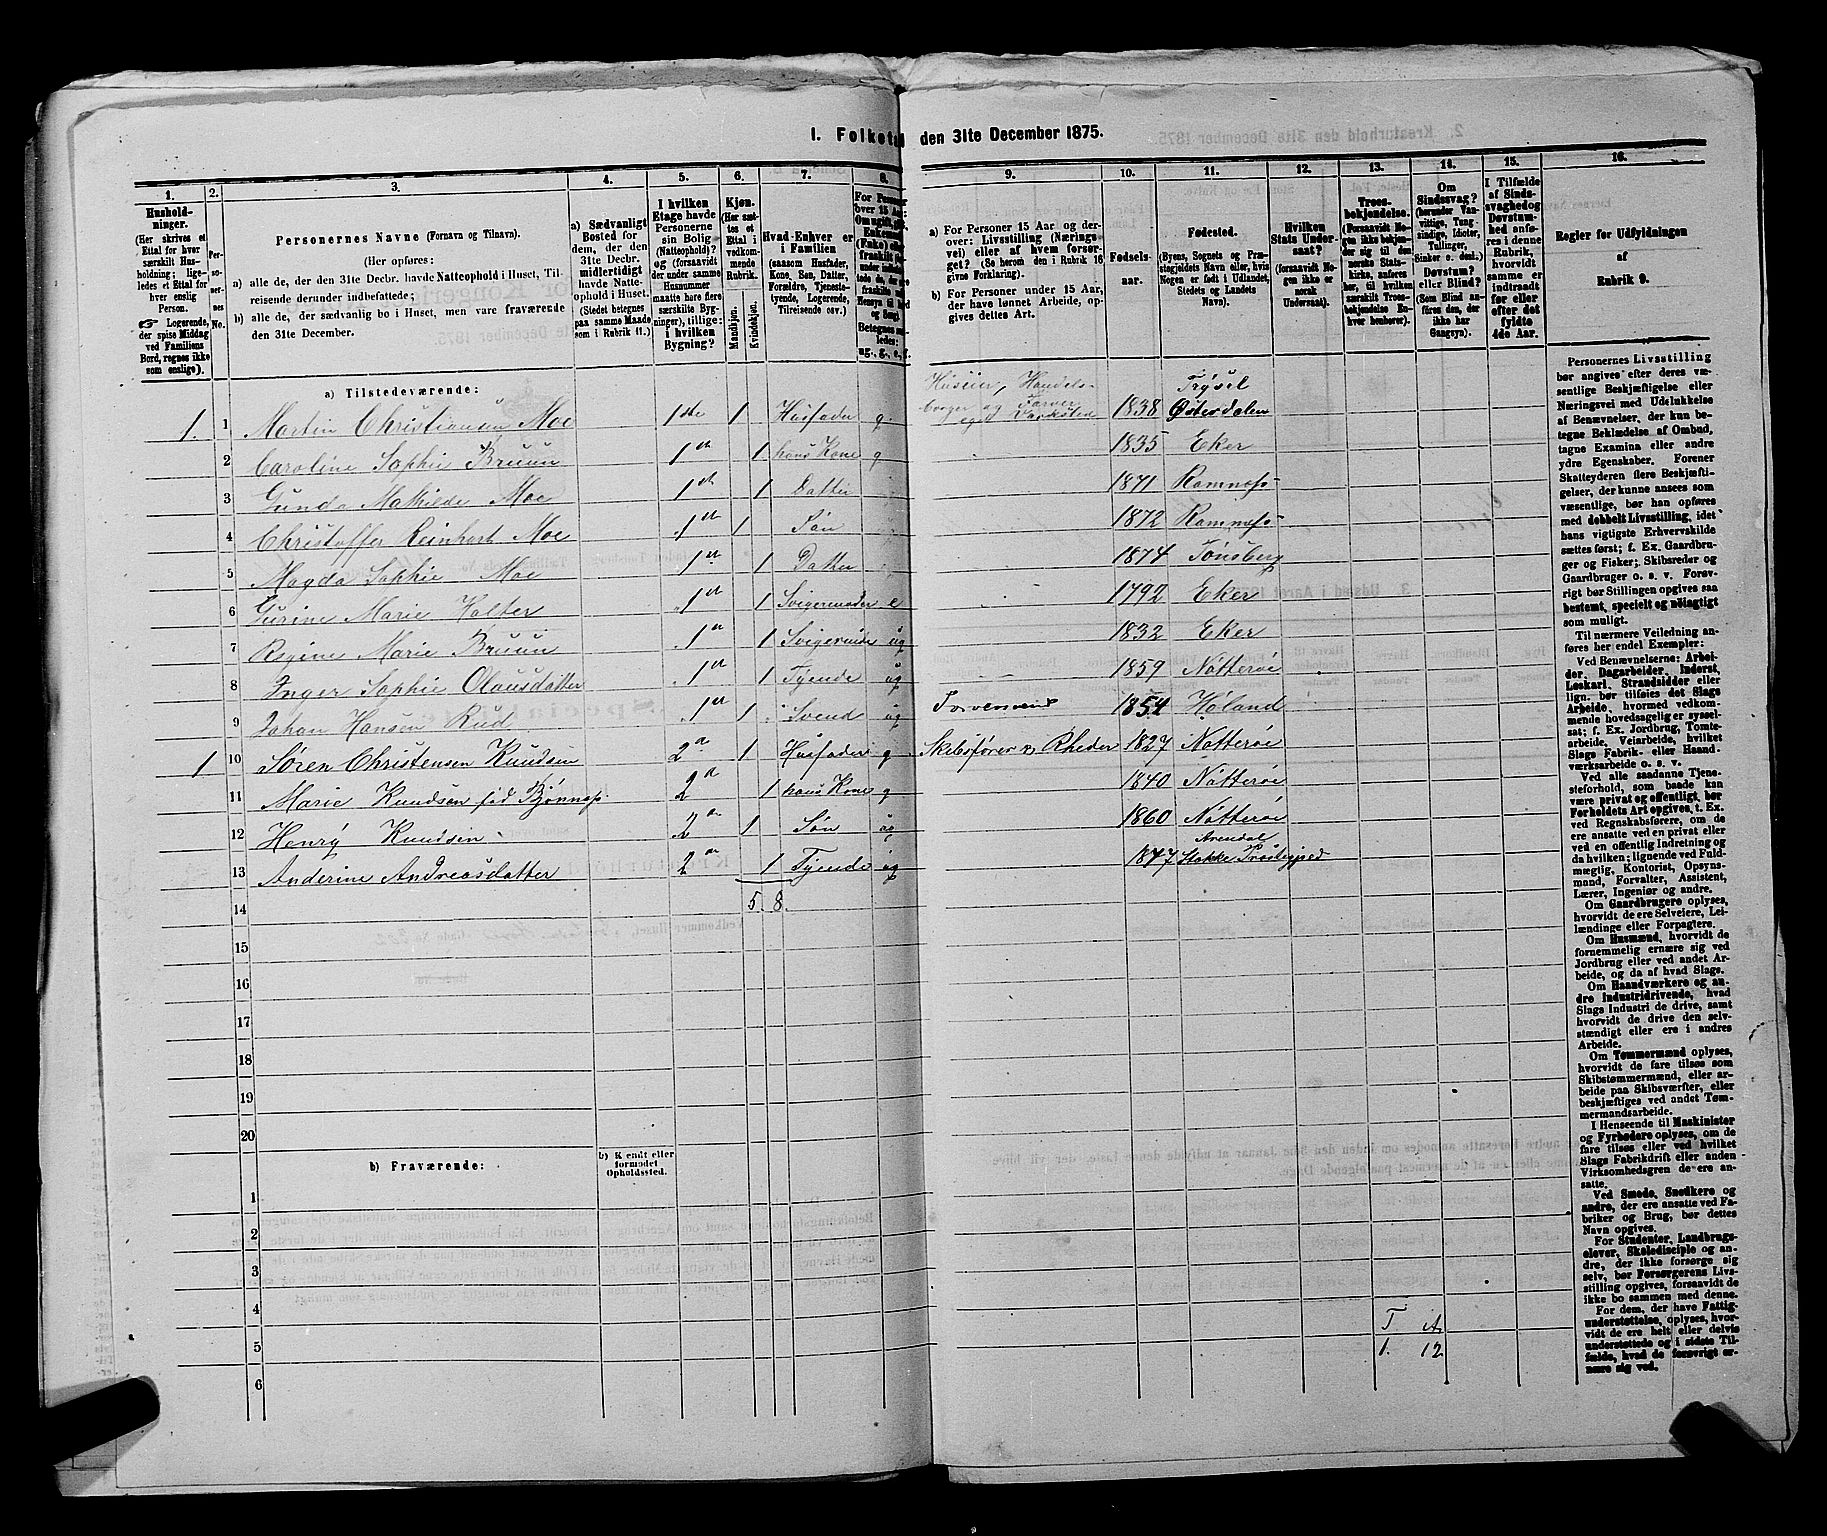 1. Folketæl den 31te December 1875.
1. 2. 3. 4. 5. 6. 7. 8. 9. 10. 11. 12. 13. 14. 15. 16.
Hushold-
ninger.
(Her skrives et
Ettal for hver
særskilt Hus-
holdning; lige-
ledes et Ettal for
hver enslig
Person.
Logerende,
der spise Middag
ved Familiens
Bord, regnes ikke
som enslige).
Per-
so-
ner-
nes
No.
Personernes Navne (Fornavn og Tilnavn).
(Her opføres:
a) alle de, der den 31te Decbr. havde Natteophold i Huset, Til-
reisende derunder indbefattede;
b) alle de, der sædvanlig bo i Huset, men vare fraværende
den 31te December.
a) Sædvanligt
Bosted for
dem, der den
31te Decbr.
midlertidigt
havde Natte-
ophold i Huset.
(Stedet betegnes
paa samme Maade
som i Rubrik 11.)
I hvilken
Etage havde
Personerne
sin Bolig
(Natteophold)?
og (forsaavidt
der under samme
Husnummer
maatte høre flere
særskilte Byg-
ninger), tillige:
i hvilken
Bygning?
Kjøn.
(Her sæt-
tes et
Ettal i
vedkom-
mende
Rubrik.
Mandkjøn.
Kvindekjøn.
Hvad Enhver er
i Familien
(saasom Husfader,
Kone, Søn, Datter,
Forældre, Tjeneste-
tyende, Logerende,
Tilreisende osv.)
For Personer
over 15 Aar:
a) For Personer 15 Aar og der-
over: Livsstilling (Nærings-
vei) eller af hvem forsør-
get? (Se herom den i Rubrik 16
givne Forklaring).
b) For Personer under 15 Aar,
der have lønnet Arbeide, op-
gives dettes Art.
Fødsels-
aar.
Fødested.
(Byens, Sognets og Præ-
stegjeldets Navn eller, hvis
Nogen er født i Udlandet,
Stedets og Landets
Navn).
Hvilken
Stats Under-
saat?
(forsaavidt No-
gen ikke er
norsk
Undersaat).
Troes-
bekjendelse.
(Forsaavidt No-
gen ikke bekjen-
der sig til den
norske Stats-
kirke, anføres
her, til hvilken
særskilt Troes-
bekjendelse En-
hver henhører).
Om
Sindssvag?
(herunder Van-
vittige, Tung-
sindige, Idioter,
Tullinger,
Sinker o. desl.)
Døvstum?
eller Blind?
(Som Blind an-
føres den, der
ikke har
Gangsyn).
I Tilfælde
af Sinds-
svaghed og
Døvstum-
hed anfø-
res i denne
Rubrik,
hvorvidt
samme er
indtraadt
før eller
efter det
fyldte
4de Aar.
Regler for Udfyldningen
af
Rubrik 9.
a) Tilstedeværende:
1. 1 Martin Christianun Moe 1ste 1 Husfader g Huseier, Handels- borger og Farver 1838 Trysel Østerdalen
2 Caroline Sophie Bruun 1 1 hans Kone g 1835 Eker
3 Gunda Mathilde Moe 1 1 Datter 1871 Ramnæs
4 Christoffer Reinhart Moe 1 1 Søn 1872 Ramnæs
5 Magda Sophie Moe 1 1 Datter 1874 Tønsberg
6 Gurine Marie Holter 1 1 Svigermoder e 1792 Eker
7 Regine Marie Bruun 1 1 ug 1832 Eker
8 Inger Sophie Olausdatter 1 1 Tyende ug 1859 Nøtterøe
9 Johan Hansen Rud 1 1 Svend ug Farversvend 1854 Høland
1 10 Søren Christensen Knudsen 2 1 Husfader g Skibsfører og Rheder 1827 Nøtterøe
11 Marie Knudsen fød Bjønnæs 2 1 hans Kone g 1840 Nøtterøe
12 Henrÿ Knudsen 2 1 Søn ug 1860 Nøtterøe
13 Anderine Andreasdatter 2 1 Tyende ug 1847 Arendal Stokke
14 5. 8.
15
16
17
18
19
20
b) Fraværende:
b) Kjendt eller
formodet
Opholdssted.
1
2
3
4
5
6
T A
1. 12
Personernes Livsstilling
bør angives efter deres væ-
sentlige Beskjæftigelse eller
Næringsvei med Udelukkelse
af Benævnelser, der kun be-
tegne Beklædelse af Ombud,
tagne Examina eller andre
ydre Egenskaber. Forener
Skatteyderen flere Beskjæfti-
gelser, der kunne ansees som
væsentlige, bør han opføres
med dobbelt Livsstilling, idet
hans vigtigste Erhvervskilde
sættes først; f. Ex. Gaardbru-
ger og Fisker; Skibsreder og
Gaardbruger o. s. v. Forøv-
rigt bør Stillingen opgives saa
bestemt, specielt og nøiagtigt
som muligt.
Til nærmere Veiledning an-
føres her endel Exempler:
Ved Benævnelserne: Arbei-
der, Dagarbeider, Inderst,
Løskarl, Strandsidder eller
lign. bør tilføies det Slags
Arbeide, hvormed vedkom-
mende hovedsagelig er syssel-
sat; f. Ex. Jordbrug, Tomte-
arbeide, Veiarbeide, hvilket
Slags Fabrik- eller Haand-
værksarbeide o. s. v.
Ved alle saadanne Tjene-
steforhold, som baade kan
være privat og offentligt, bør
Forholdets Art opgives, t. Ex.
ved Regnskabsførere, om de
ere ansatte ved en privat eller
ved en offentlig Indretning og
da hvilken; lignende ved Fuld-
mægtig, Kontorist, Opsyns-
mand, Forvalter, Assistent,
Lærer, Ingeniør og andre.
Om Gaardbrugere oplyses,
hvorvidt de ere Selveiere, Lei-
lændinge eller Forpagtere.
Om Husmænd, hvorvidt de
fornemmelig ernære sig ved
Jordbrug eller ved andet Ar-
beide, og da af hvad Slags.
Om Haandværkere og an-
dre Industridrivende, hvad
Slags Industri de drive, samt
hvorvidt de drive den selv-
stændigt eller ere i andres
Arbeide.
Om Tømmermænd oplyses,
hvorvidt de fare tilsøs som
Skibstømmermænd, eller ar-
beide paa Skibsværfter, eller
beskjæftiges ved andet Tøm-
mermandsarbeide.
I Henseende til Maskinister
og Fyrbødere oplyses, om de
fare tilsøs eller ved hvilket
Slags Fabrikdrift eller anden
Virksomhedsgren de ere an-
satte.
Ved Smede, Snedkere og
andre, der ere ansatte ved Fa-
briker og Brug, bør dettes
Navn opgives.
For Studenter, Landbrugs-
elever, Skoledisciple og an-
dre, der ikke forsørge sig
selv, bør Forsørgerens Livs-
stilling opgives, forsaavidt de
ikke bo sammen med denne.
For dem, der have Fattig-
understøttelse, oplyses, hvor-
vidt de ere helt eller delvis
understøttede og i sidste Til-
fælde, hvad de forøvrigt er-
nære sig ved.